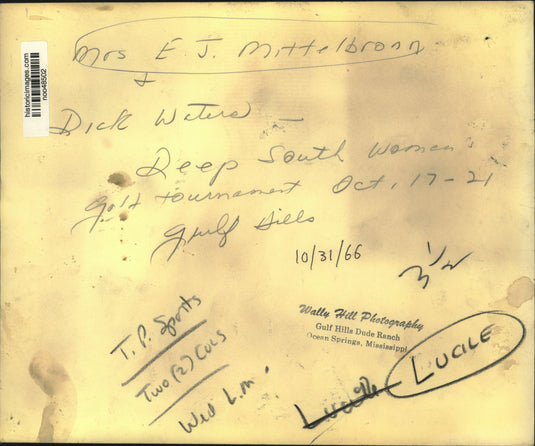 historicimages.com
noo48502
Mrs E J. Mittelbronn
+
Dick Waters —
Deep South Woman's
golf tournament Oct, 17-21
Gulf Hills
10/31/66
3 1/2
Wally Hill Photography
Gulf Hills Dude Ranch
Ocean Springs, Mississippi
T.P. Sports
Two (2) Cols
Wed L.M.
Lucille LUCILE